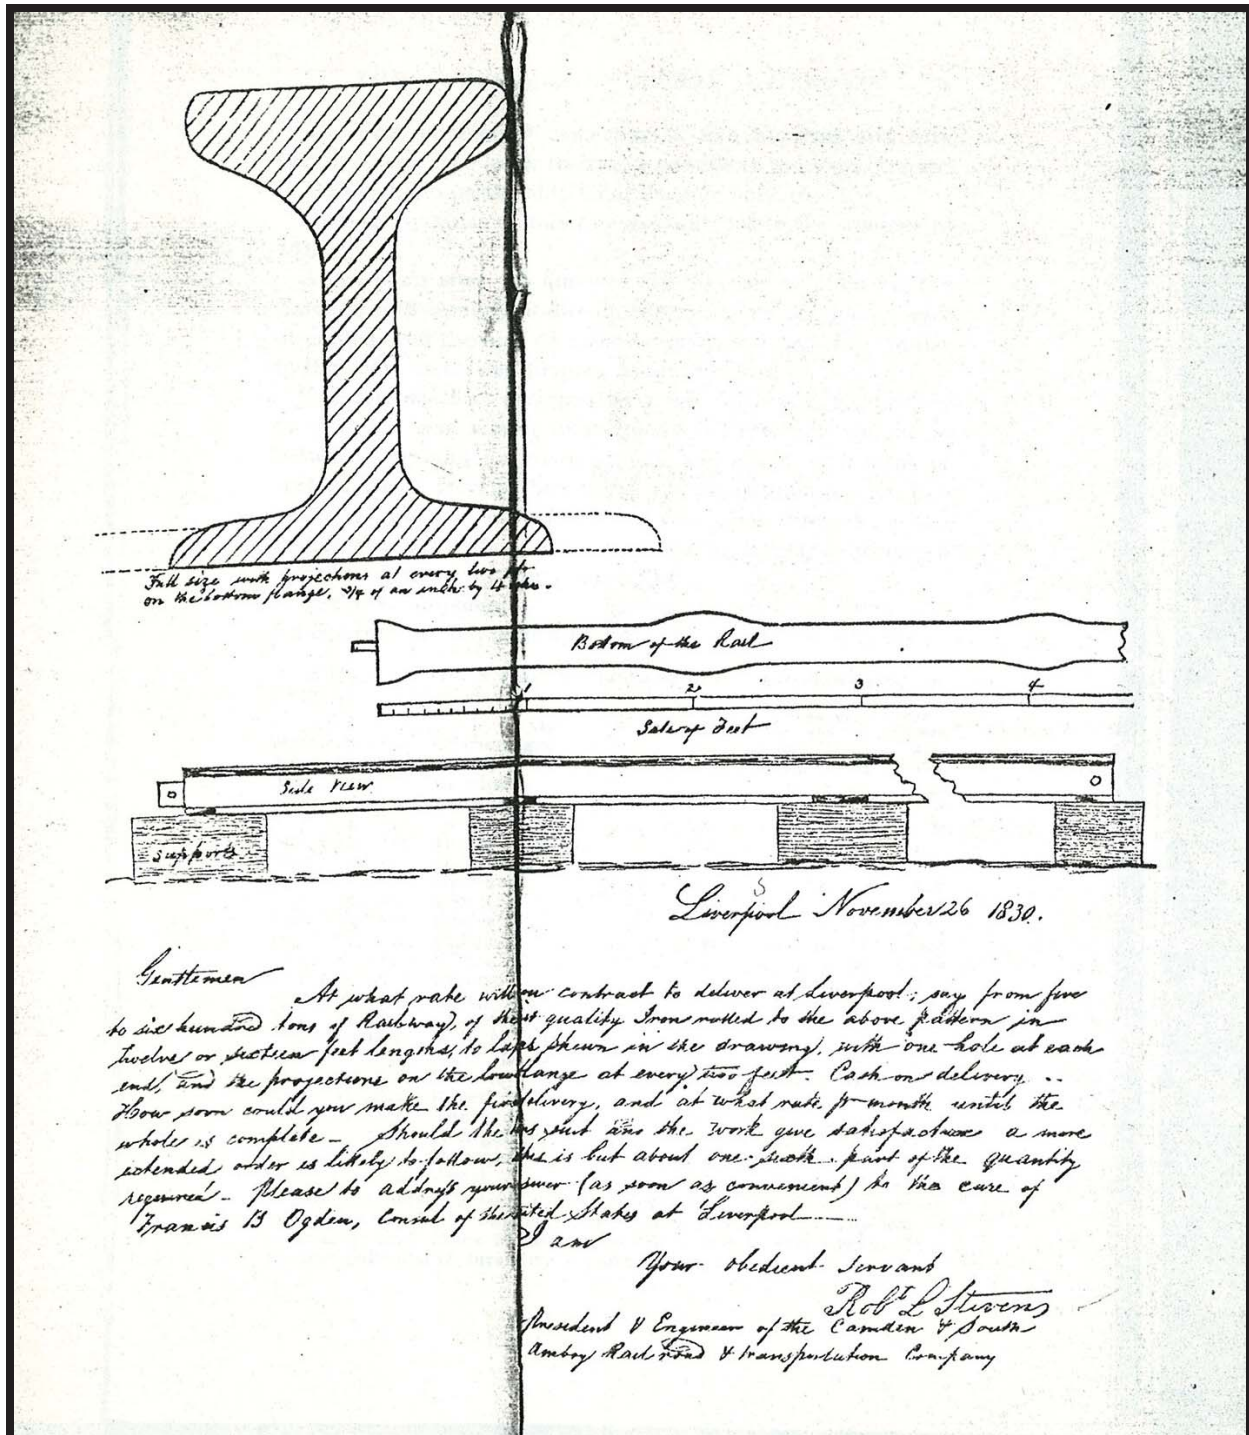 Full size with projections at every two
on the bottom flange, 3/4 of an inch by 4
Bottom of the Rail
1 2 3 4
Scale of Feet
Side View
Supports
Liverpool November 26 1830.
Gentlemen
At what rate will contract to deliver at Liverpool; say from five
to six hundred tons of Railway, of the quality Iron rolled to the above pattern in
twelve or sixteen feet lengths, to lap shewn in the drawing, with one hole at each
end, and the projections on the at every two feet. Cash on delivery ..
How soon could you make the delivery, and at what rate pr month until the
whole is complete – Should the suit and the work give satisfaction a more
extended order is likely to follow, this is but about one-sixth part of the quantity
required – Please to address your (as soon as convenient) to the care of
Francis B Ogden, Consul of the States at Liverpool
I am
Your obedient servant
Robt L Stevens
President & Engineer of the Camden & South
Amboy Rail road & transportation Company